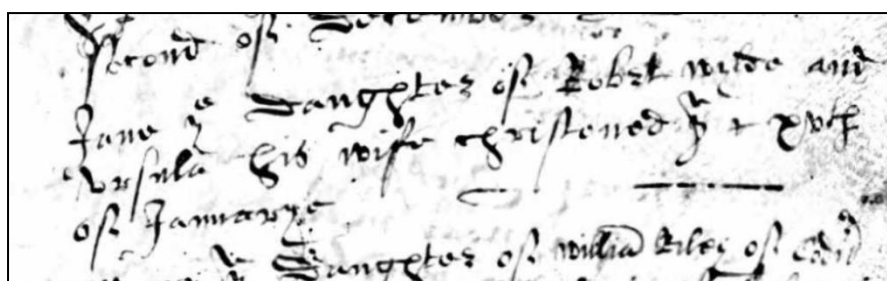 Second of December
Jane ye Daughter of Robrt wilde and
Vrsula his wife christened ye xvth
of Januarye
ye Daughter of Willia Riley of